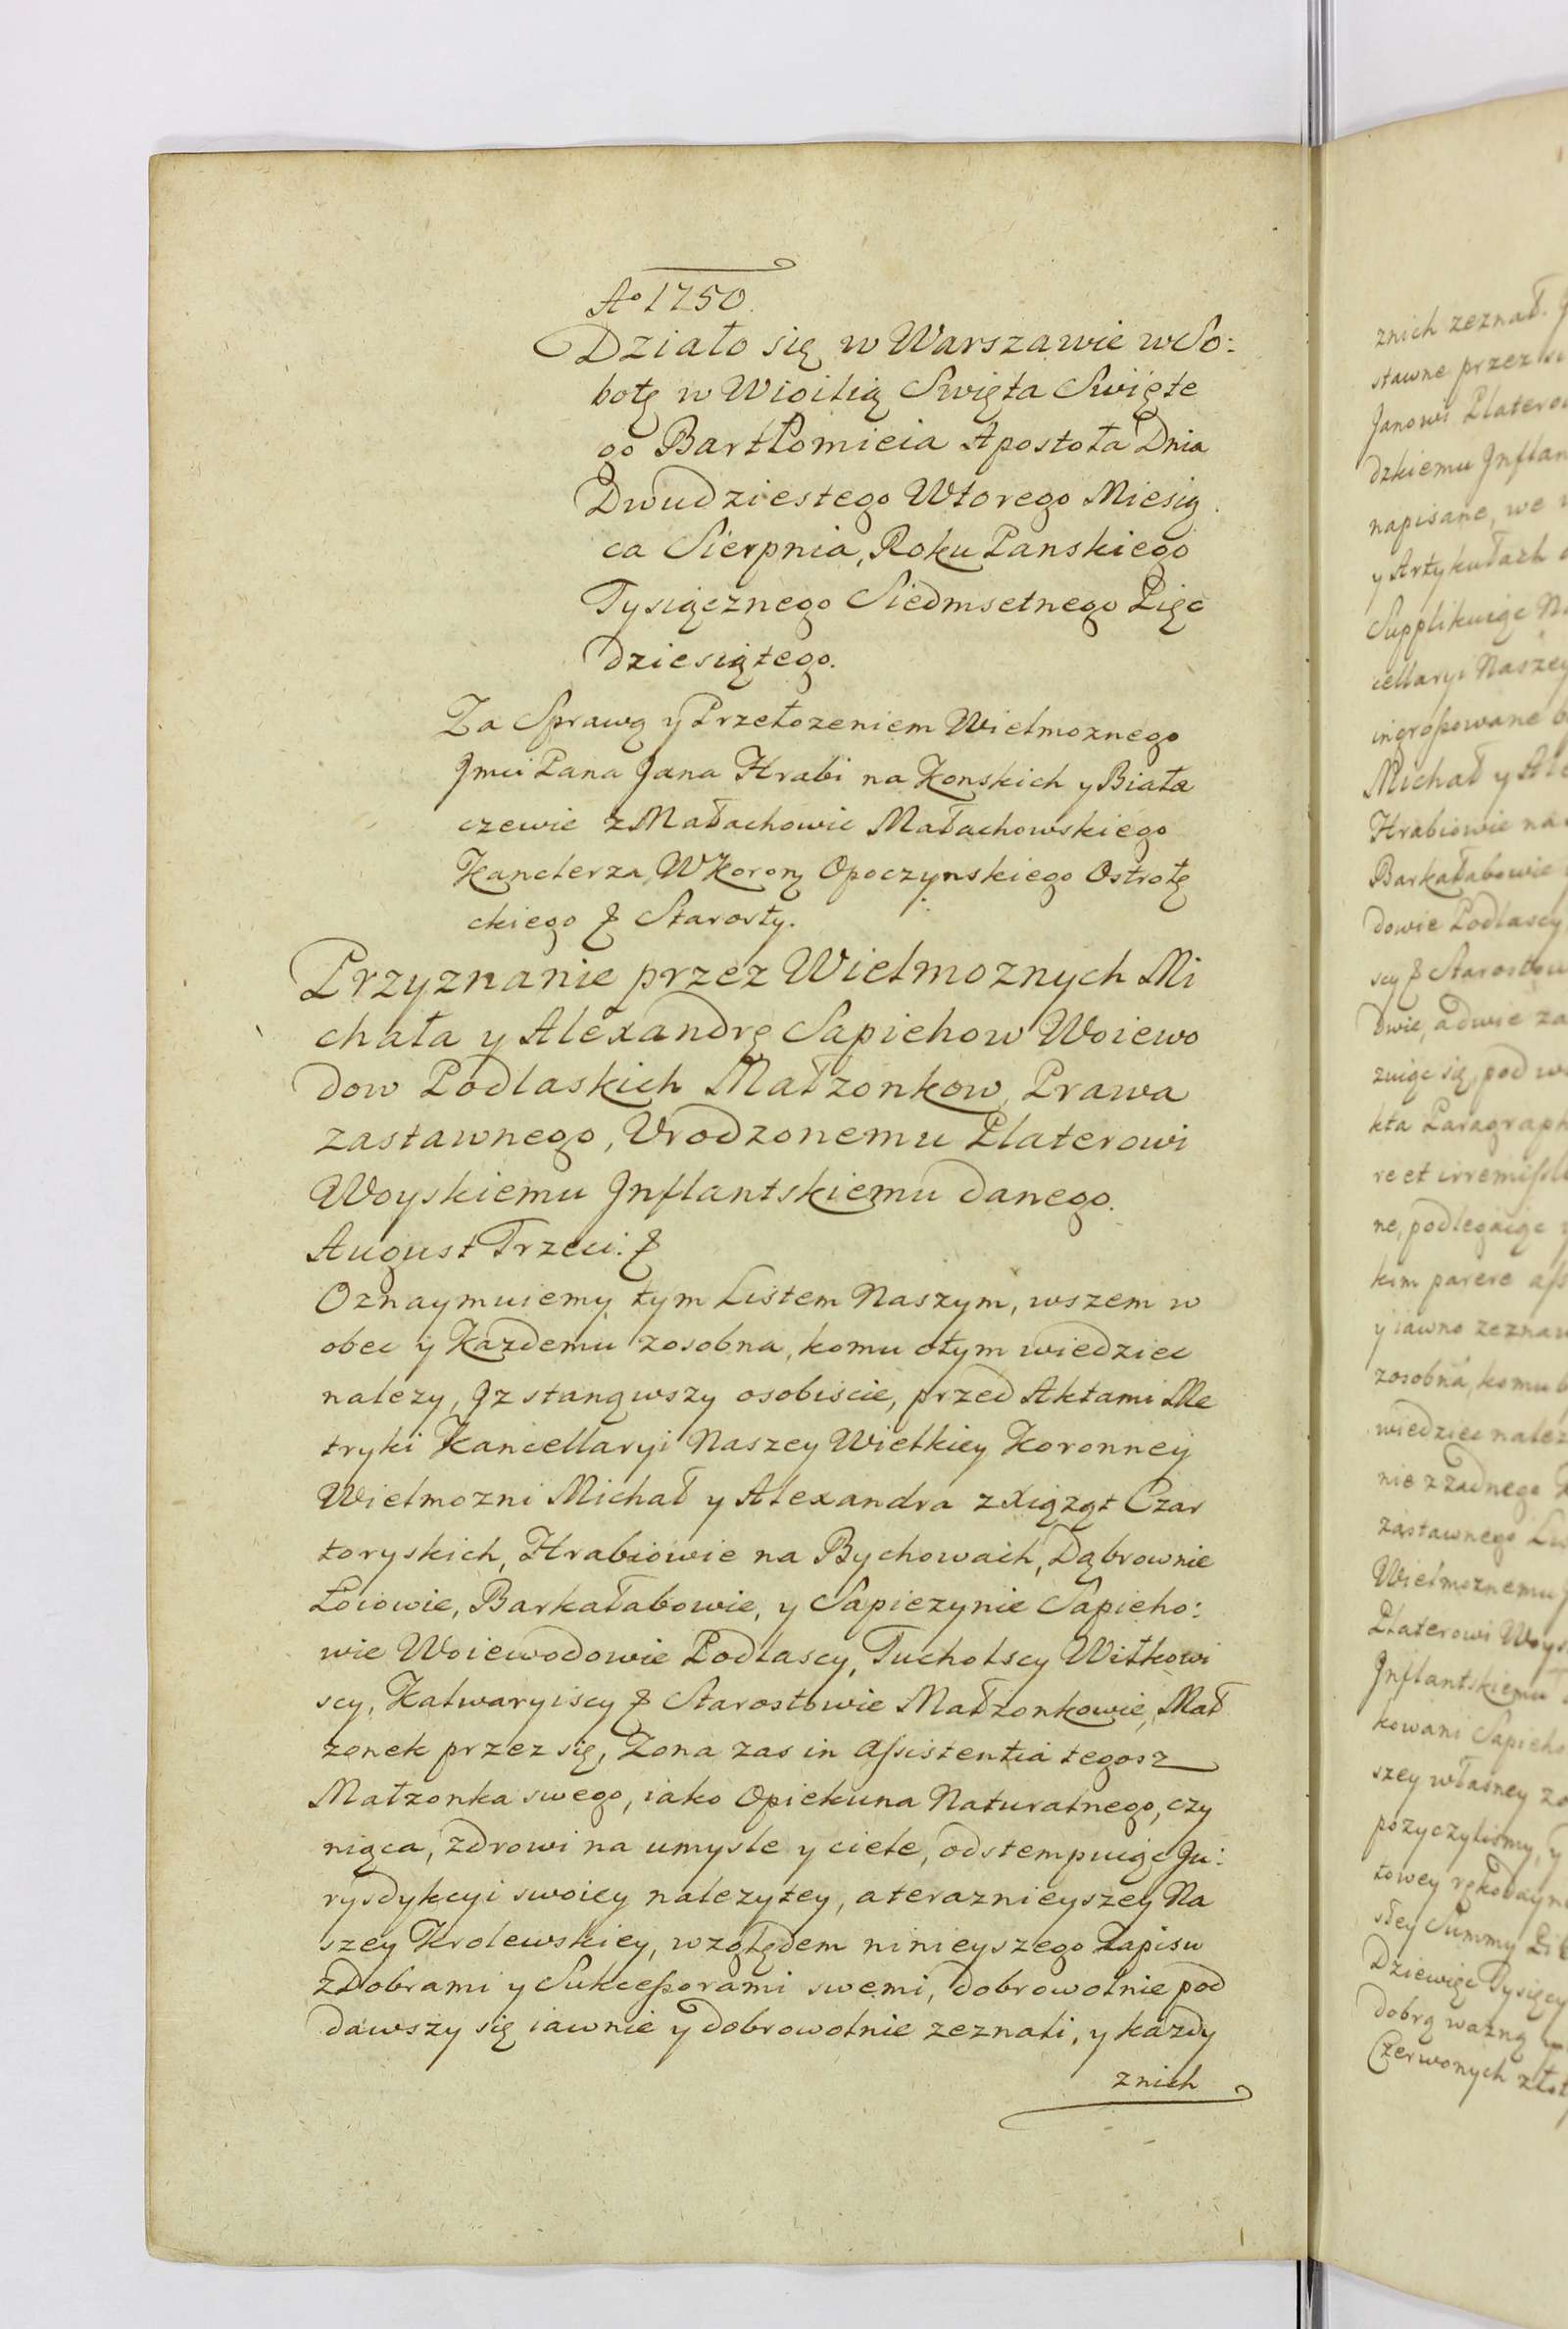 Ao 1750.
Działo się w Warszawie w So:
botę w Wigilią Swięta Swięte
go Bartłomieia Apostoła Dnia
Dwudziestego Wtorego Miesią
ca Sierpnia, Roku Panskiego
Tysiącznego Siedmsetnego Pięc
dziesiątego.
Za Sprawą y Przełozeniem Wielmoznego
Jmci Pana Jana Hrabi na Konskich y Biała
czewie z Małachowic Małachowskiego
Kanclerza W Korony Opoczynskiego Ostrołę
ckiego & Starosty.
Przyznanie przez Wielmoznych Mi
chała y Alexandrę Sapiehow Woiewo
dow Podlaskich Małzonkow, Prawa
zastawnego, Urodzonemu Platerowi
Woyskiemu Jnflantskiemu danego.
August Trzeci. &
Oznaymuiemy tym Listem Naszym, wszem w
obec y Kazdemu zosobna, komu otym wiedziec
nalezy, Jz stanąwszy osobiscie, przed Aktami Me
tryki Kancellaryi Naszey Wielkiey Koronney
Wielmozni Michał y Alexandra z Xiąząt Czar
toryskich, Hrabiowie na Bychowach, Dąbrownie
Łoiowie, Barkałabowie, y Sapiezynie Sapieho:
wie Woiewodowie Podlascy, Tucholscy Wiłkowi
scy, Kalwaryiscy & Starostowie Małzonkowie, Mał
zonek przez się, Zona zas in assistentia tegosz
Małzonka swego, iako Opiekuna Naturalnego, czy
niąca, zdrowi na umysle y ciele, odstempuiąc Ju:
rysdykcyi swoiey nalezytey, a teraznieyszey Na
szey Krolewskiey, względem ninieyszego Zapisu
z Dobrami y Sukcessorami swemi, dobrowolnie pod
dawszy się iawnie y dobrowolnie zeznali, y kazdy
znich
znich zeznał.
stawne przez
Janowi Platerow
dzkiemu Jnflan
napisane, we
y Artykułach
Supplikuiąc
cellaryi Naszey
ingrossowane
Michał y Ale
Hrabiowie na
Barkałabowie
dowie Podlascy
scy & Starostow
dwie, a dwie za
zuiąc się, pod
kta Paragraph
re et irremissi
ne, podlegaiąc
kim parere ass
y iawno zeznaw
zosobna, komu
wiedziec nalez
nie z zadnego
zastawnego
Wielmoznemu
Platerowi Woys
Jnflantskiemu
kowani Sapieho
szey własney
pozyczylismy, y
towey rękodayn
słey Summy
Dziewięc Tysięcy
dobrą wazną
Czerwonych złot